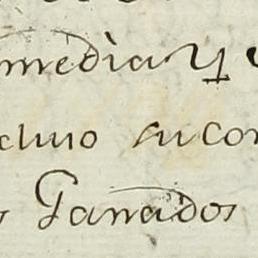 media y
cluio su con
Ganados